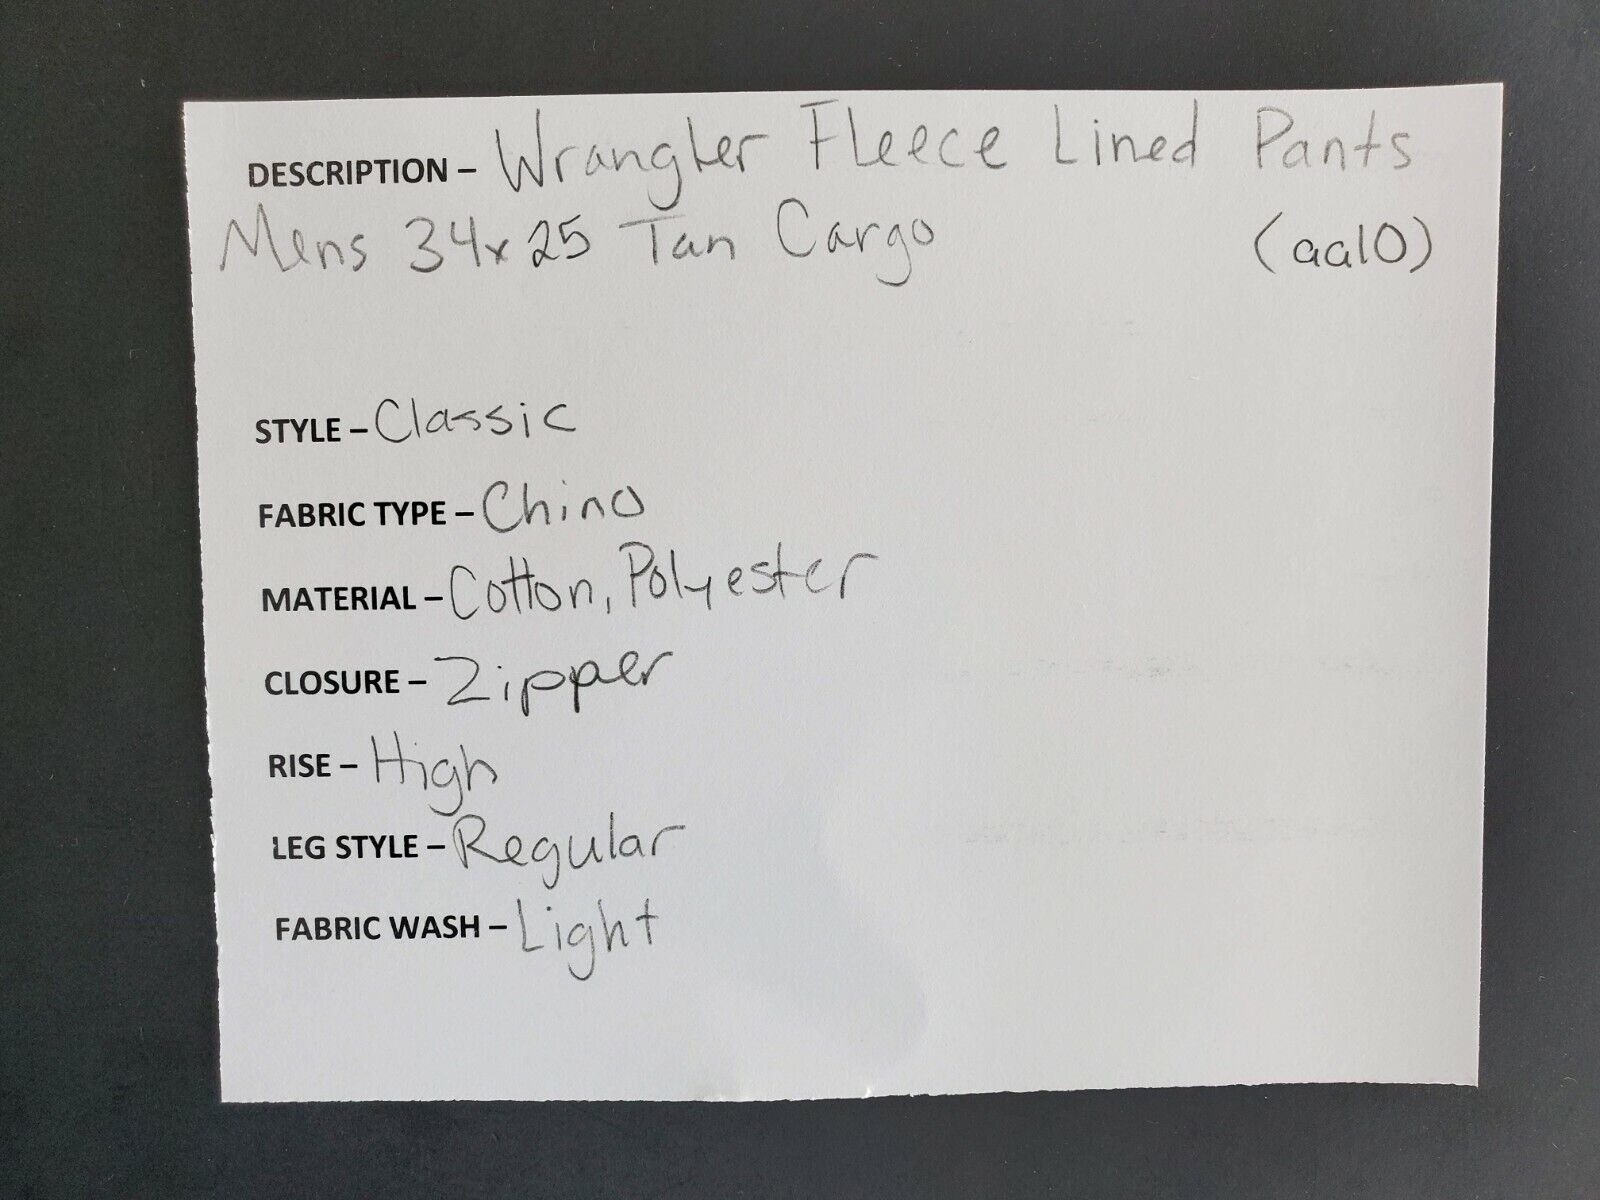 DESCRIPTION – Wrangler Fleece Lined Pants
Mens 34x25 Tan Cargo (aa10)
STYLE – Classic
FABRIC TYPE – Chino
MATERIAL – Cotton, Polyester
CLOSURE – Zipper
RISE – High
LEG STYLE – Regular
FABRIC WASH – Light